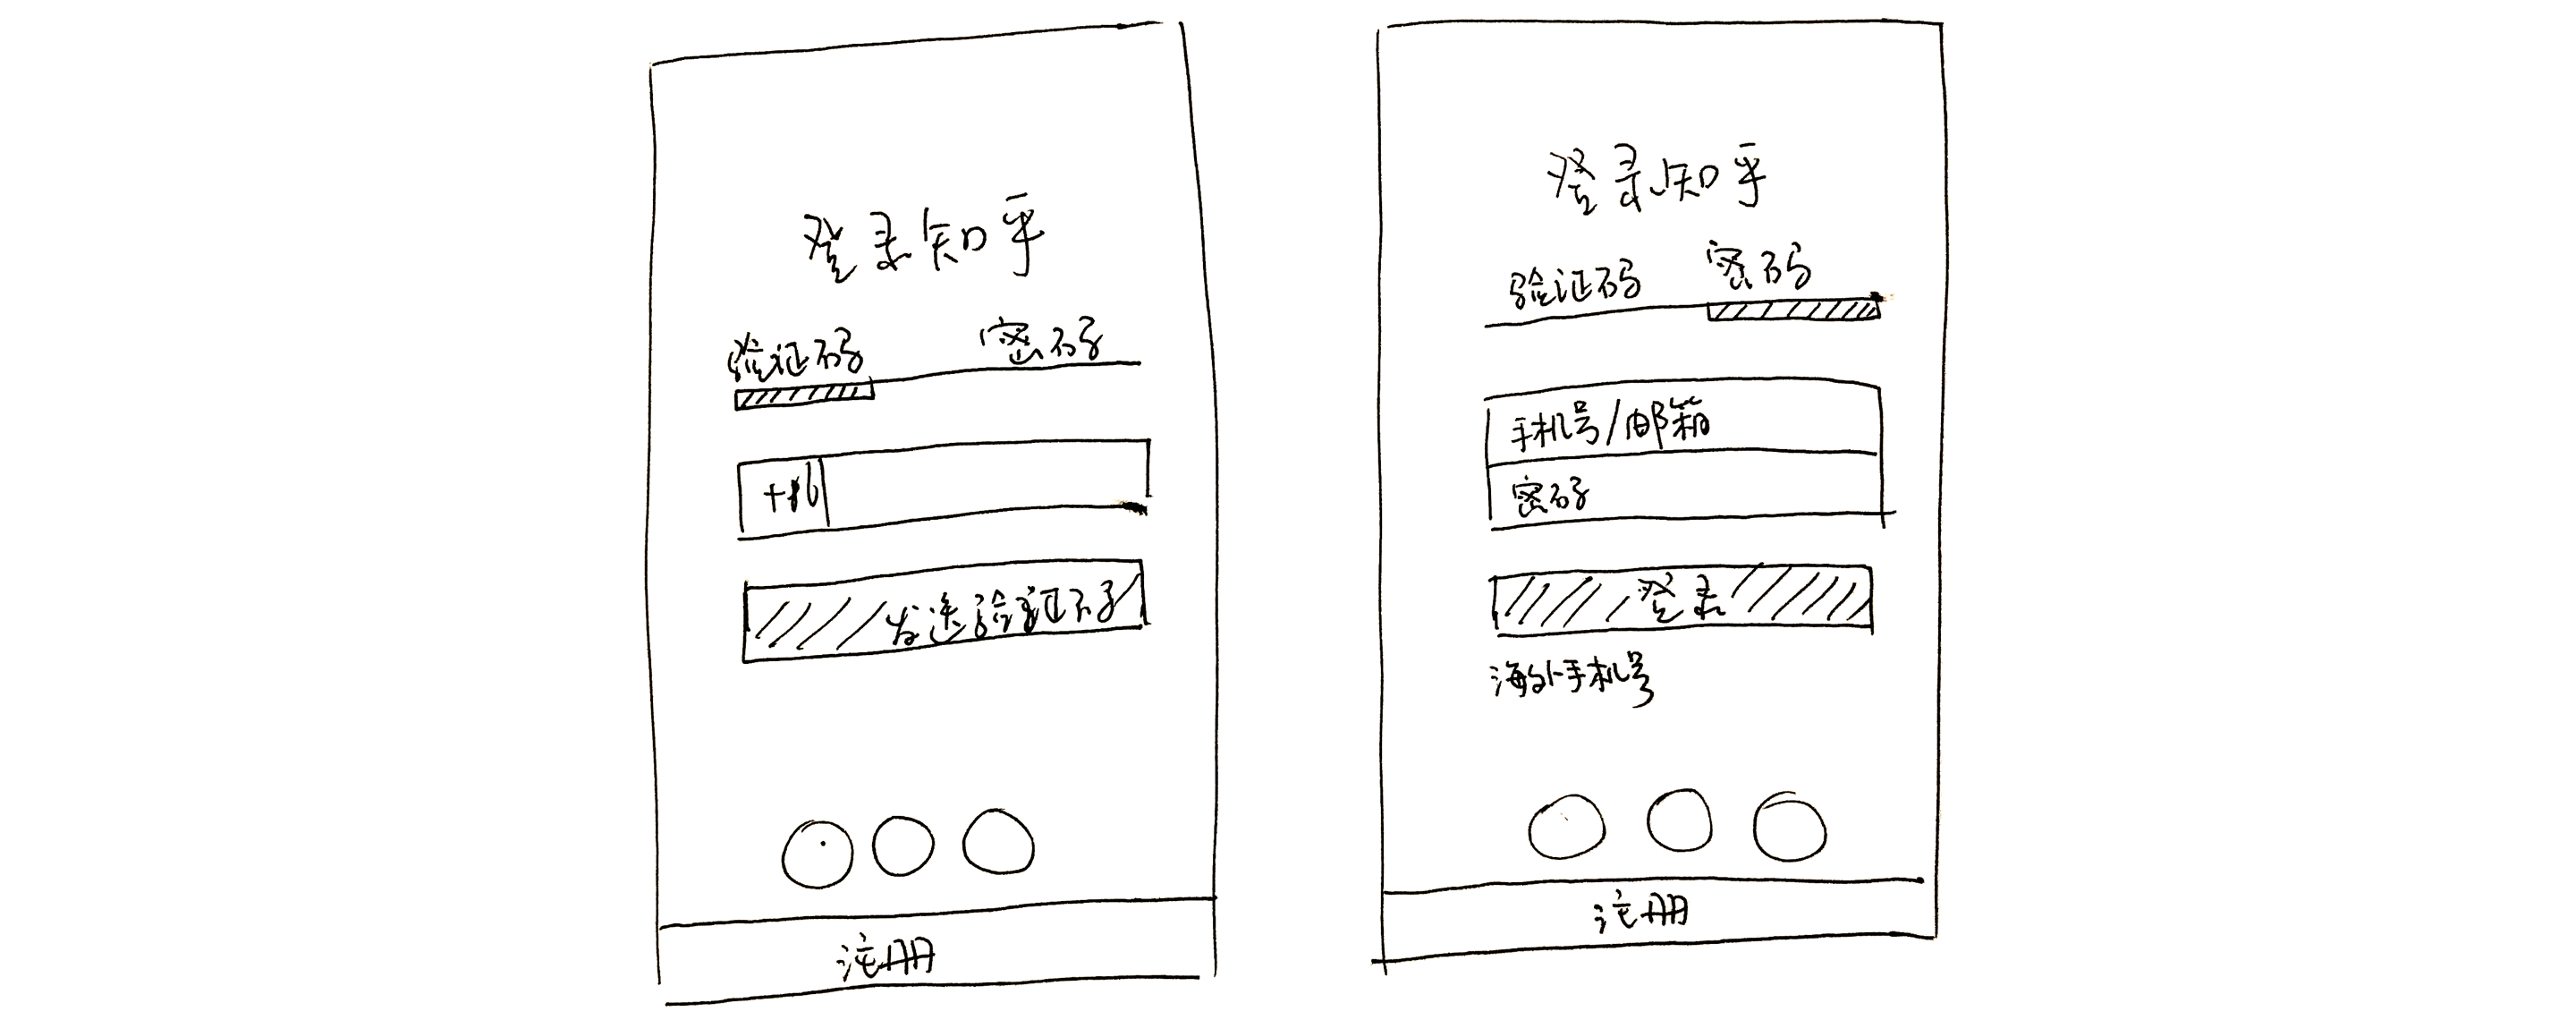 登录知乎
验证码 密码
发送验证码
注册
登录知乎
验证码 密码
手机号/邮箱
密码
登录
海外手机号
注册